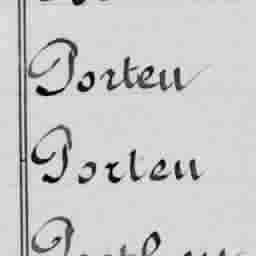 Porteu
Porteu